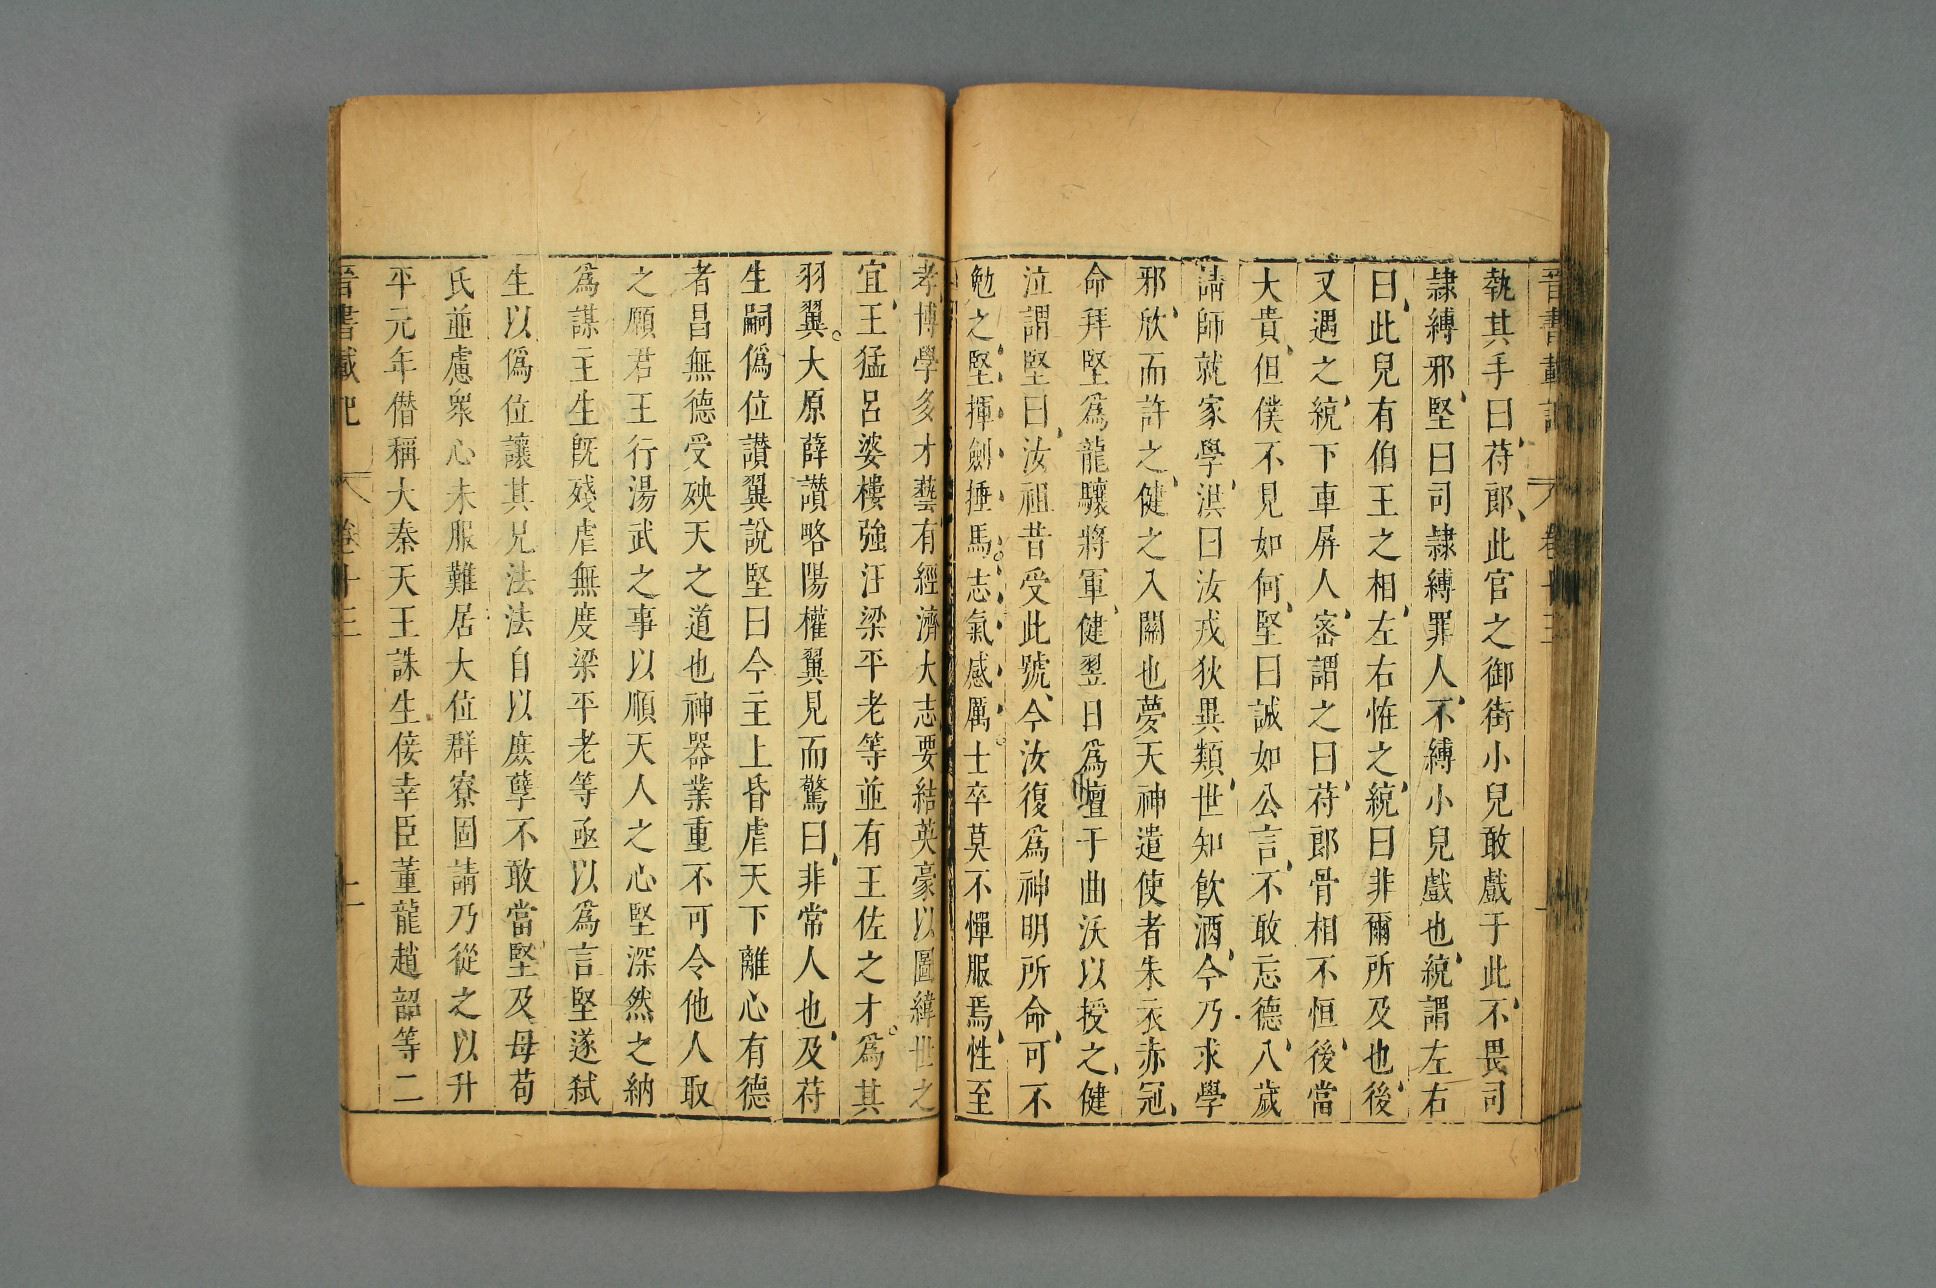 晉書載記 卷十三
執其手曰、苻郎、此官之御街小兒敢戲于此、不畏司
隷縛邪、堅曰司隷縛罪人、不縛小兒戲也、統謂左右
曰、此兒有伯王之相、左右恠之、統曰非爾所及也、後
又遇之、統下車屏人、密謂之曰、苻郎骨相不恒、後當
大貴、但僕不見如何、堅曰誠如公言、不敢忘德、八歲
請師就家學、洪曰汝戎狄異類、世知飮酒、今乃求學
邪、欣而許之、健之入關也夢天神遣使者朱衣赤冠、
命拜堅爲龍驤將軍、健翌日爲壇于曲沃以授之、健
泣謂堅曰、汝祖昔受此號、今汝復爲神明所命、可不
勉之、堅揮劍捶馬。志氣感厲。士卒莫不憚服焉、性至
孝、博學多才藝有經濟大志要結英豪以圖緯世之
宜、王猛呂婆樓強汪梁平老等並有王佐之才。爲其
羽翼。大原薛讚略陽權翼見而驚曰、非常人也、及苻
生嗣僞位讃翼說堅曰今主上昏虐天下離心有德
者昌無德受殃天之道也神器業重不可令他人取
之願君王行湯武之事以順天人之心堅深然之納
爲謀主生旣殘虐無度梁平老等亟以爲言堅遂弑
生以僞位讓其兄法法自以庶孽不敢當堅及母苟
氏並慮衆心未服難居大位群寮固請乃從之以升
平元年僭稱大秦天王誅生倿幸臣董龍趙韶等二
晉書載記 卷十三 二